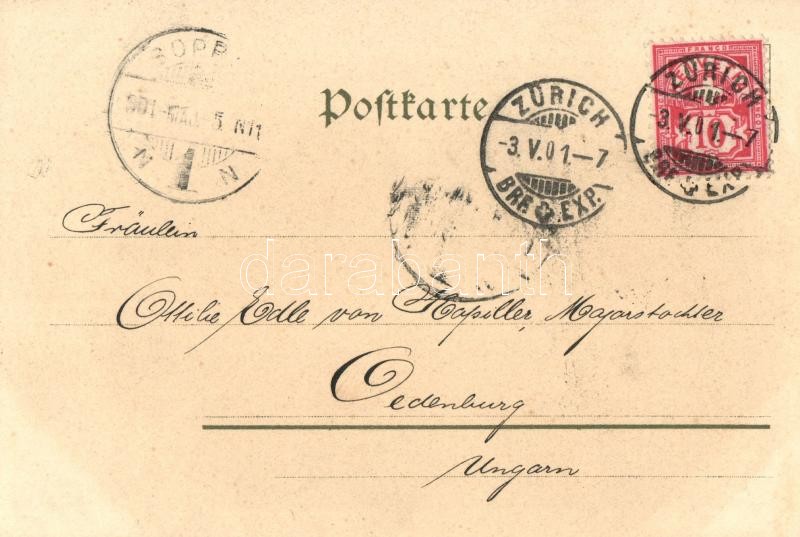 SOPR
901 MÁJ. 5. N11
N N
Postkarte
ZÜRICH
-3.V.01.-7
BRF. & EXP.
FRANCO
10
ZÜRICH
-3.V.01.-7
BRF. & EXP.
Fräulein
darabanth
Ottilie Edle von Kapiller, Majorstochter
Oedenburg
Ungarn